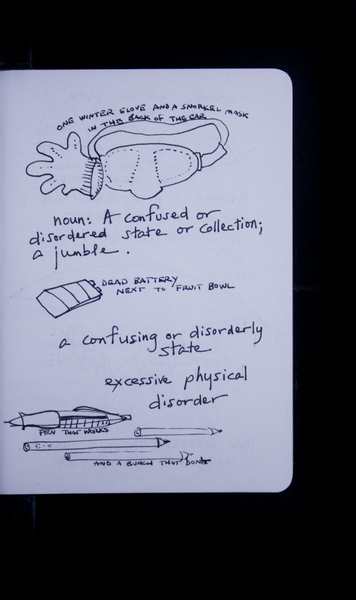 ONE WINTER GLOVE AND A SNORKEL MASK
IN THE BACK OF THE CAR
noun: A confused or
disordered state or collection;
a jumble.
DEAD BATTERY
NEXT TO FRUIT BOWL
a confusing or disorderly
state
excessive physical
disorder
PEN THAT WORKS
AND A BUNCH THAT DONT